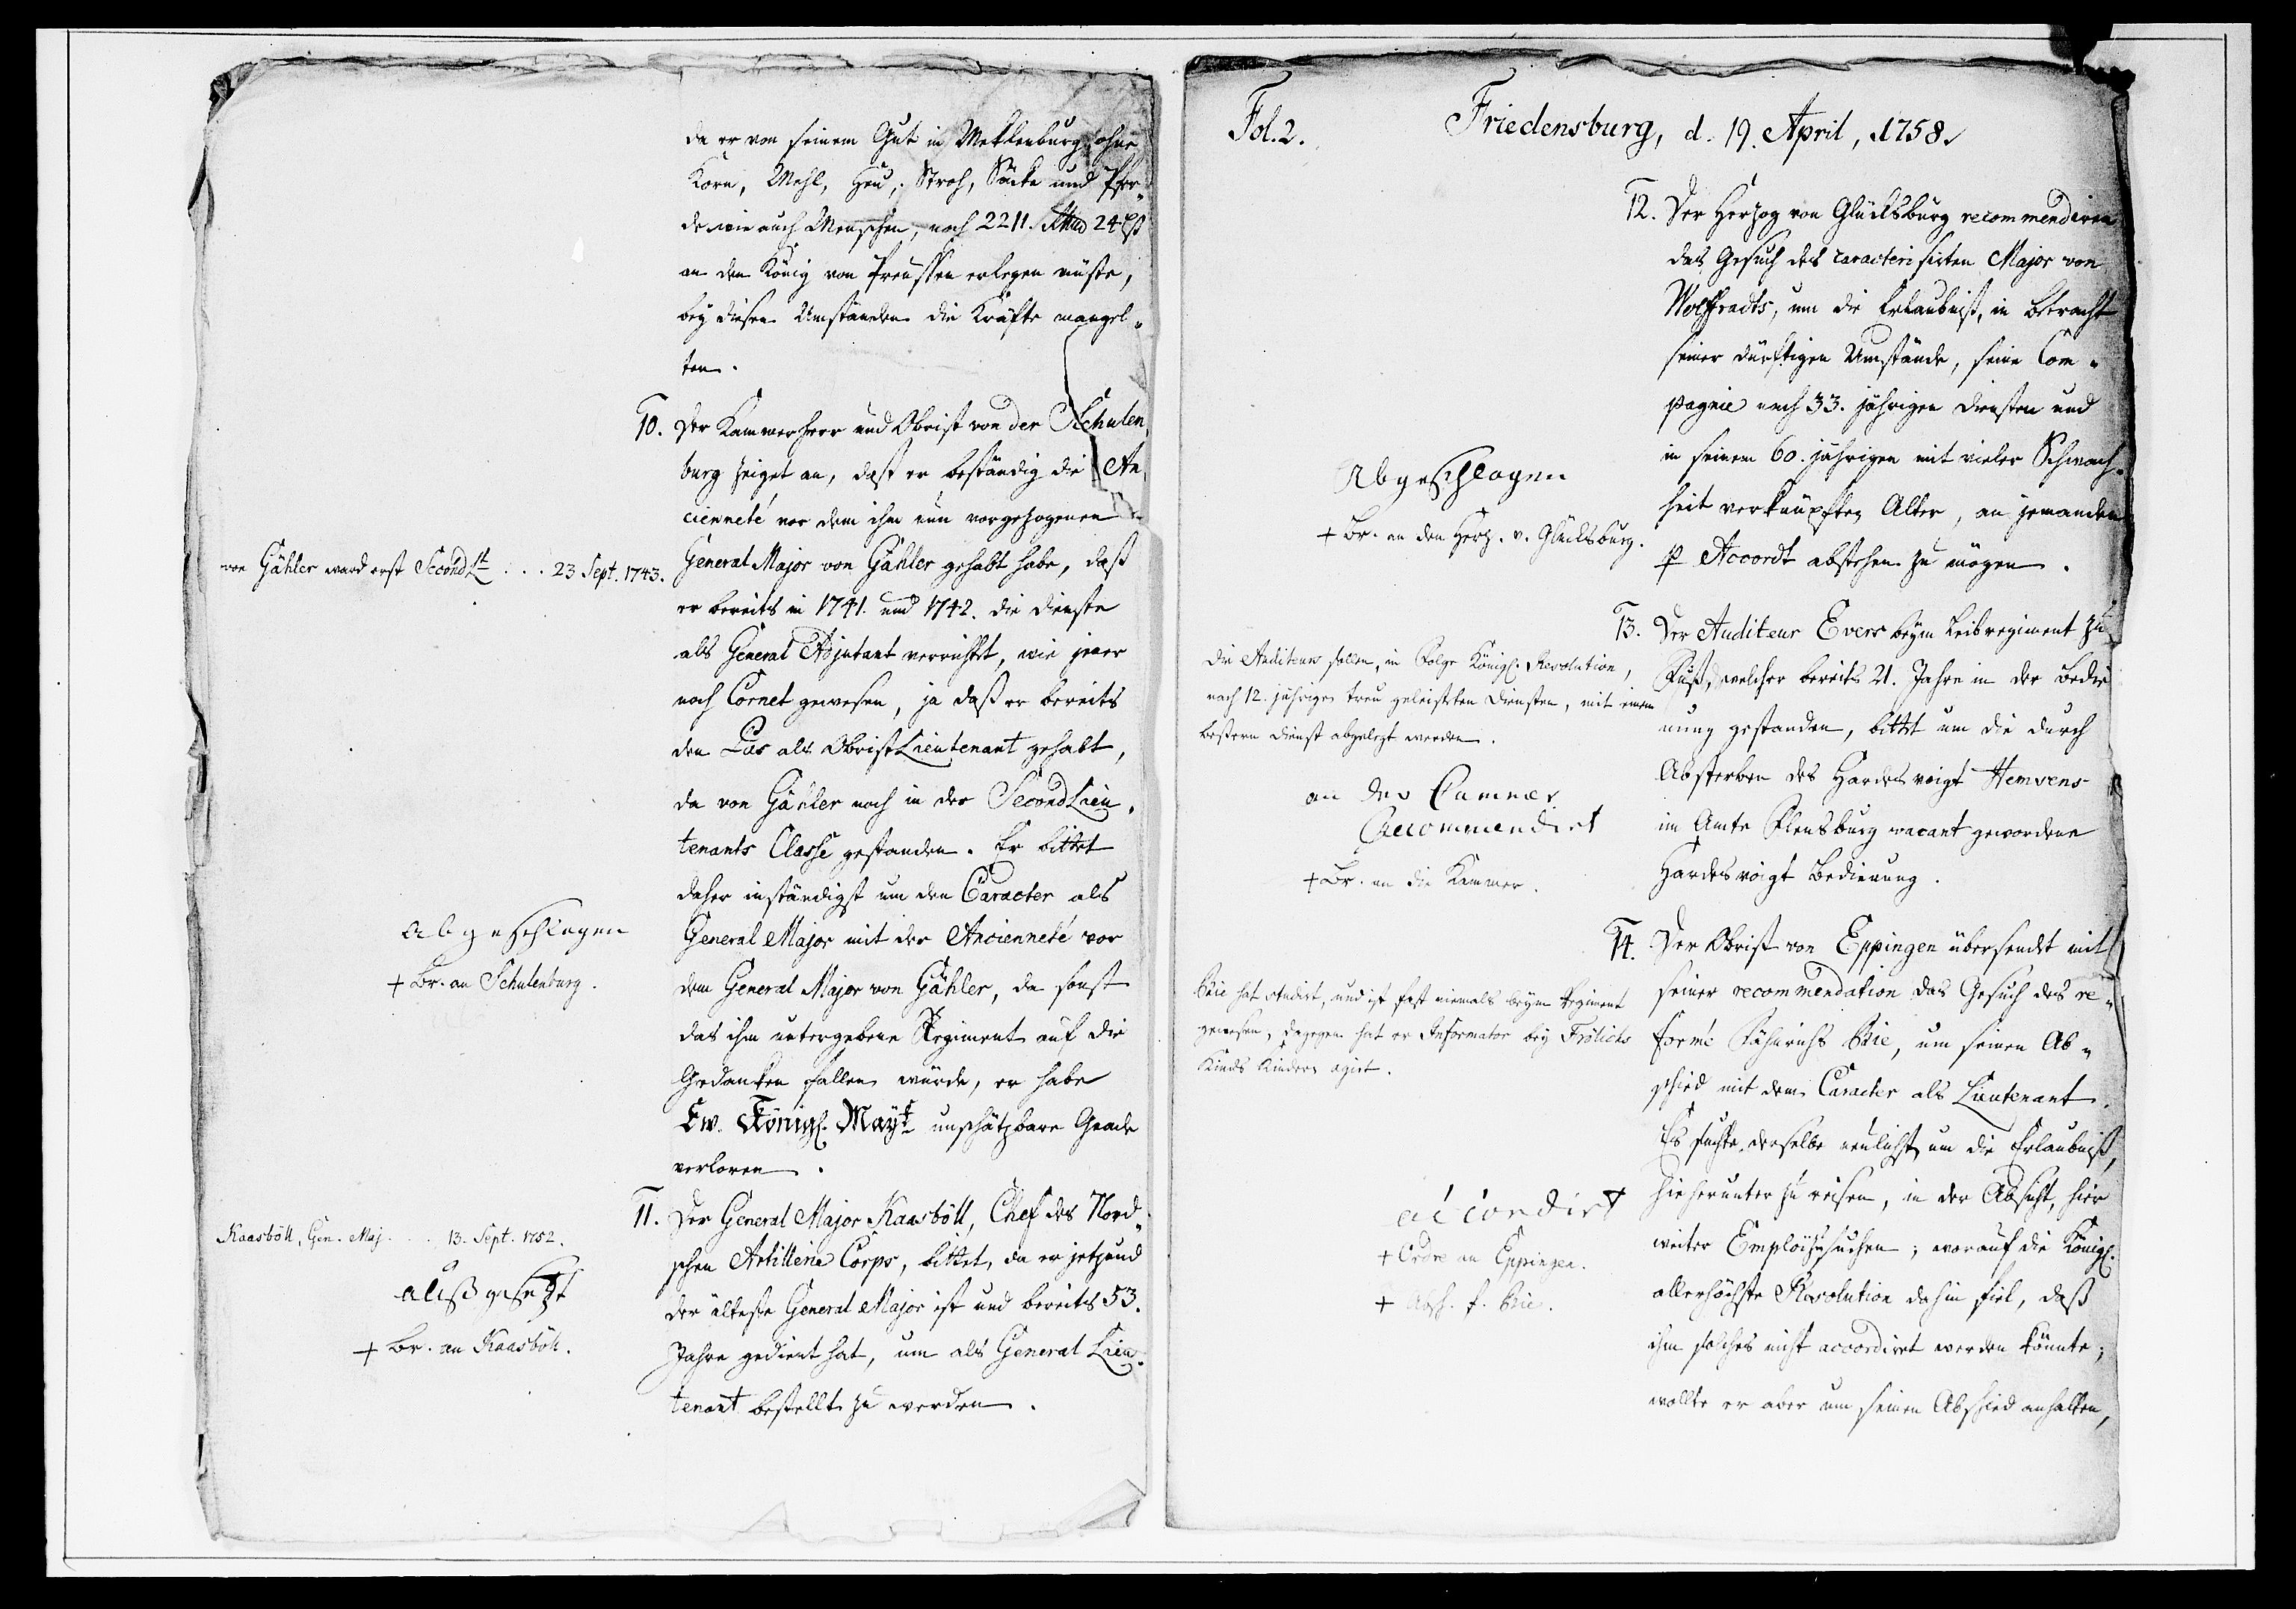 da er von seinem Gut in Meklenburg, ohne
Korn, Mehl, Heu, Stroh, Säcke und Pfer-
de wie auch Menschen, noch 2211. 24
an den König von Preussen erlegen müste,
bey diesen Umständen die Kräfte mangel-
ten.
10. Der Kammerherr und Obrist von der Schulen-
burg zeiget an, dass er beständig die An-
cienneté vor dem ihm nun vorgezogenen
General Major von Gähler gehabt habe, daß
er bereits in 1741. und 1742. die Dienste
als General Adjutant verrichtet, wie jener
noch Cornet gewesen, ja daß er bereits
den Pas als ObristLieutenant gehabt,
da von Gähler noch in der SecondLieu-
tenants Classe gestanden. Er bittet
daher inständigst um den Caracter als
General Major mit der Ancienneté vor
dem General Major von Gähler, da sonst
das ihm untergebene Regiment auf die
Gedanken fallen würde, er habe
Ew. Königl. Mayt. unschätzbare Gnade
verloren.
von Gähler ward erst SecondLt. ... 23 Sept. 1743.
abgeschlagen
+ Br. an Schulenburg.
11. Der General Major Kaasböll, Chef des Nord-
schen Artillerie Corps, bittet, da er jetzund
der älteste General Major ist und bereits 53.
Jahre gedient hat, um als General Lieu-
tenant bestellt zu werden.
Kaasböll, Gen. Maj. ... 13. Sept. 1752.
außgesetzt
+ Br. an Kaasböll.
Fol. 2.
Friedensburg, d. 19. April, 1758.
12. Der Herzog von Glücksburg recommendiren
das Gesuch des caracterisirten Major von
Wolffradts, um die Erlaubniß, in Betracht
seiner dürftigen Umstände, seine Com-
pagnie nach 33. jährigen Diensten und
in seinem 60. jährigen mit vieler Schwach-
heit verknüpften Alter, an jemanden
p Accordt abstehen zu mögen.
Abgeschlagen
+ Br. an den Herz. v. Glücksburg.
13. Der Auditeur Evers beym Leibregiment zu
Fuß, welcher bereits 21. Jahre in der Bedie
nung gestanden, bittet um die durch
Absterben des Hardesvoigt Hemsens
im Amte Flensburg vacant gewordene
Hardesvoigt Bedienung.
Die Auditeurs sollen, in Folge Königl. Resolution,
nach 12. jährigen treu geleisteten Diensten, mit einem
bessern Dienst abgelegt werden.
an der Cammer
Recommendirt
+ Br. an die Kammer.
14. Der Obrist von Eppingen übersendet mit
seiner recommendation das Gesuch des re-
formé Fähnrichs Bie, um seinen Ab-
schied mit dem Caracter als Lieutenant.
Es suchte derselbe neulichst um die Erlaubniß,
hieherunter zu reisen, in der Absicht, hier
weiter Emploi zu suchen; worauf die Königl.
allerhöchste Resolution dahin fiel, daß
ihm solches nicht accordiret werden könnte;
wollte er aber um seinen Abschied anhalten,
Bie hat studirt, und ist fast niemals beym Regiment
gewesen, dagegen hat er Informator bey Frölichs
Kinds Kinder agirt.
accordirt
+ Ordre an Eppingen.
+ Absch. f. Bie.